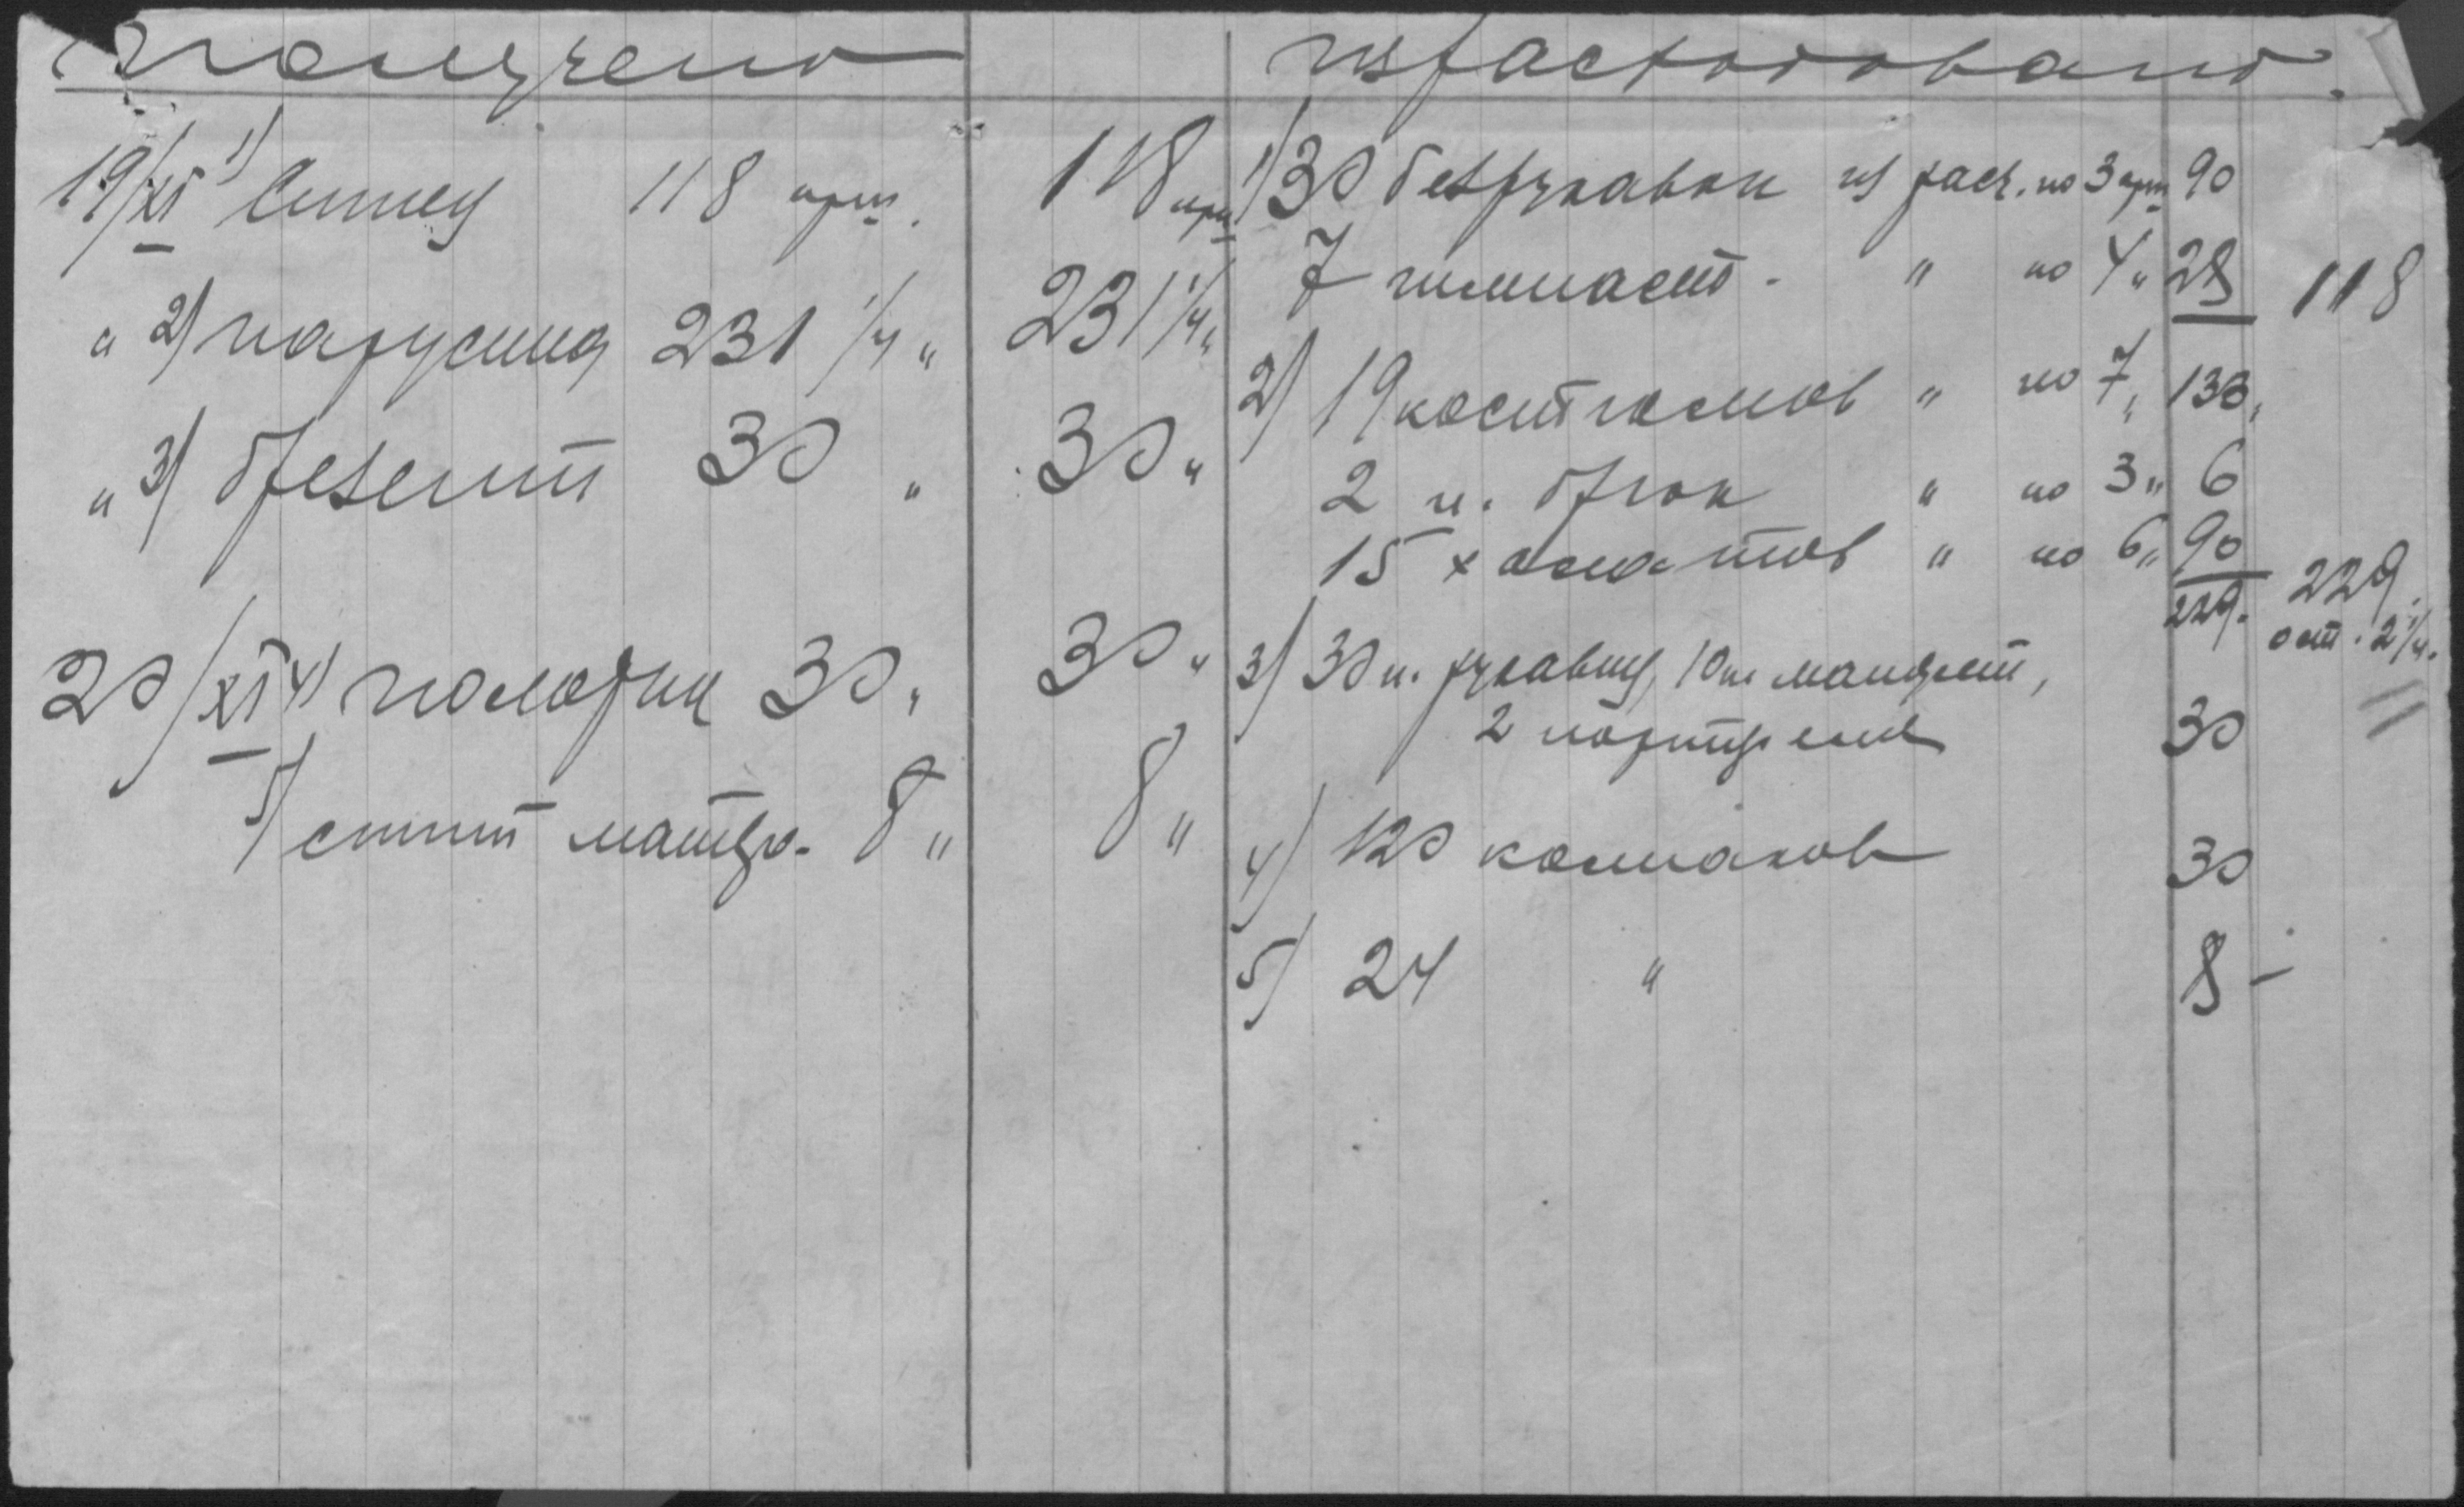 Получено
израсходовано.
19/XI 1) Ситец 118 арш. 118 арш
" 2) парусина 231 1/4 " 231 1/4 "
" 3) брезент 30 " 30 "
20/XI 4) 30 " 30 "
5) мат 8 " 8 "
1) 30 безрукавок из расч. по 3 арш 90
7 гимнаст. " по 4 " 28 118
2) 19 костюмов " по 7 " 133 "
2 п. брюк " по 3 " 6
15 халатов " по 6 " 90
229. 229.
ост. 2 1/4.
3) 30 п. рукавиц, 10 п.
2 30
4) 120 колпаков 30
5) 24 " 8 –